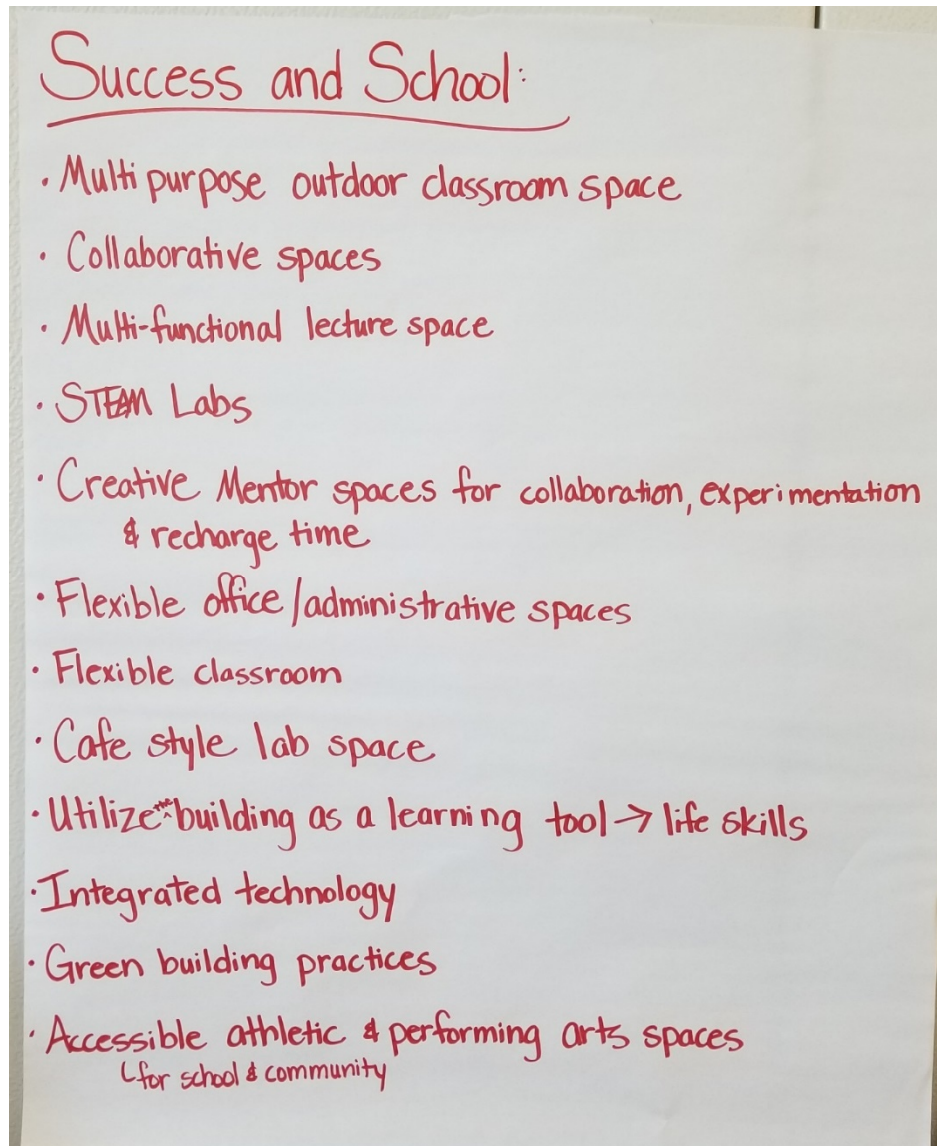 Success and School:
• Multi purpose outdoor classroom space
• Collaborative spaces
• Multi-functional lecture space
• STEAM Labs
• Creative Mentor spaces for collaboration, experimentation
& recharge time
• Flexible office/administrative spaces
• Flexible classroom
• Cafe style lab space
• Utilize the building as a learning tool → life skills
• Integrated technology
• Green building practices
• Accessible athletic & performing arts spaces
↳ for school & community